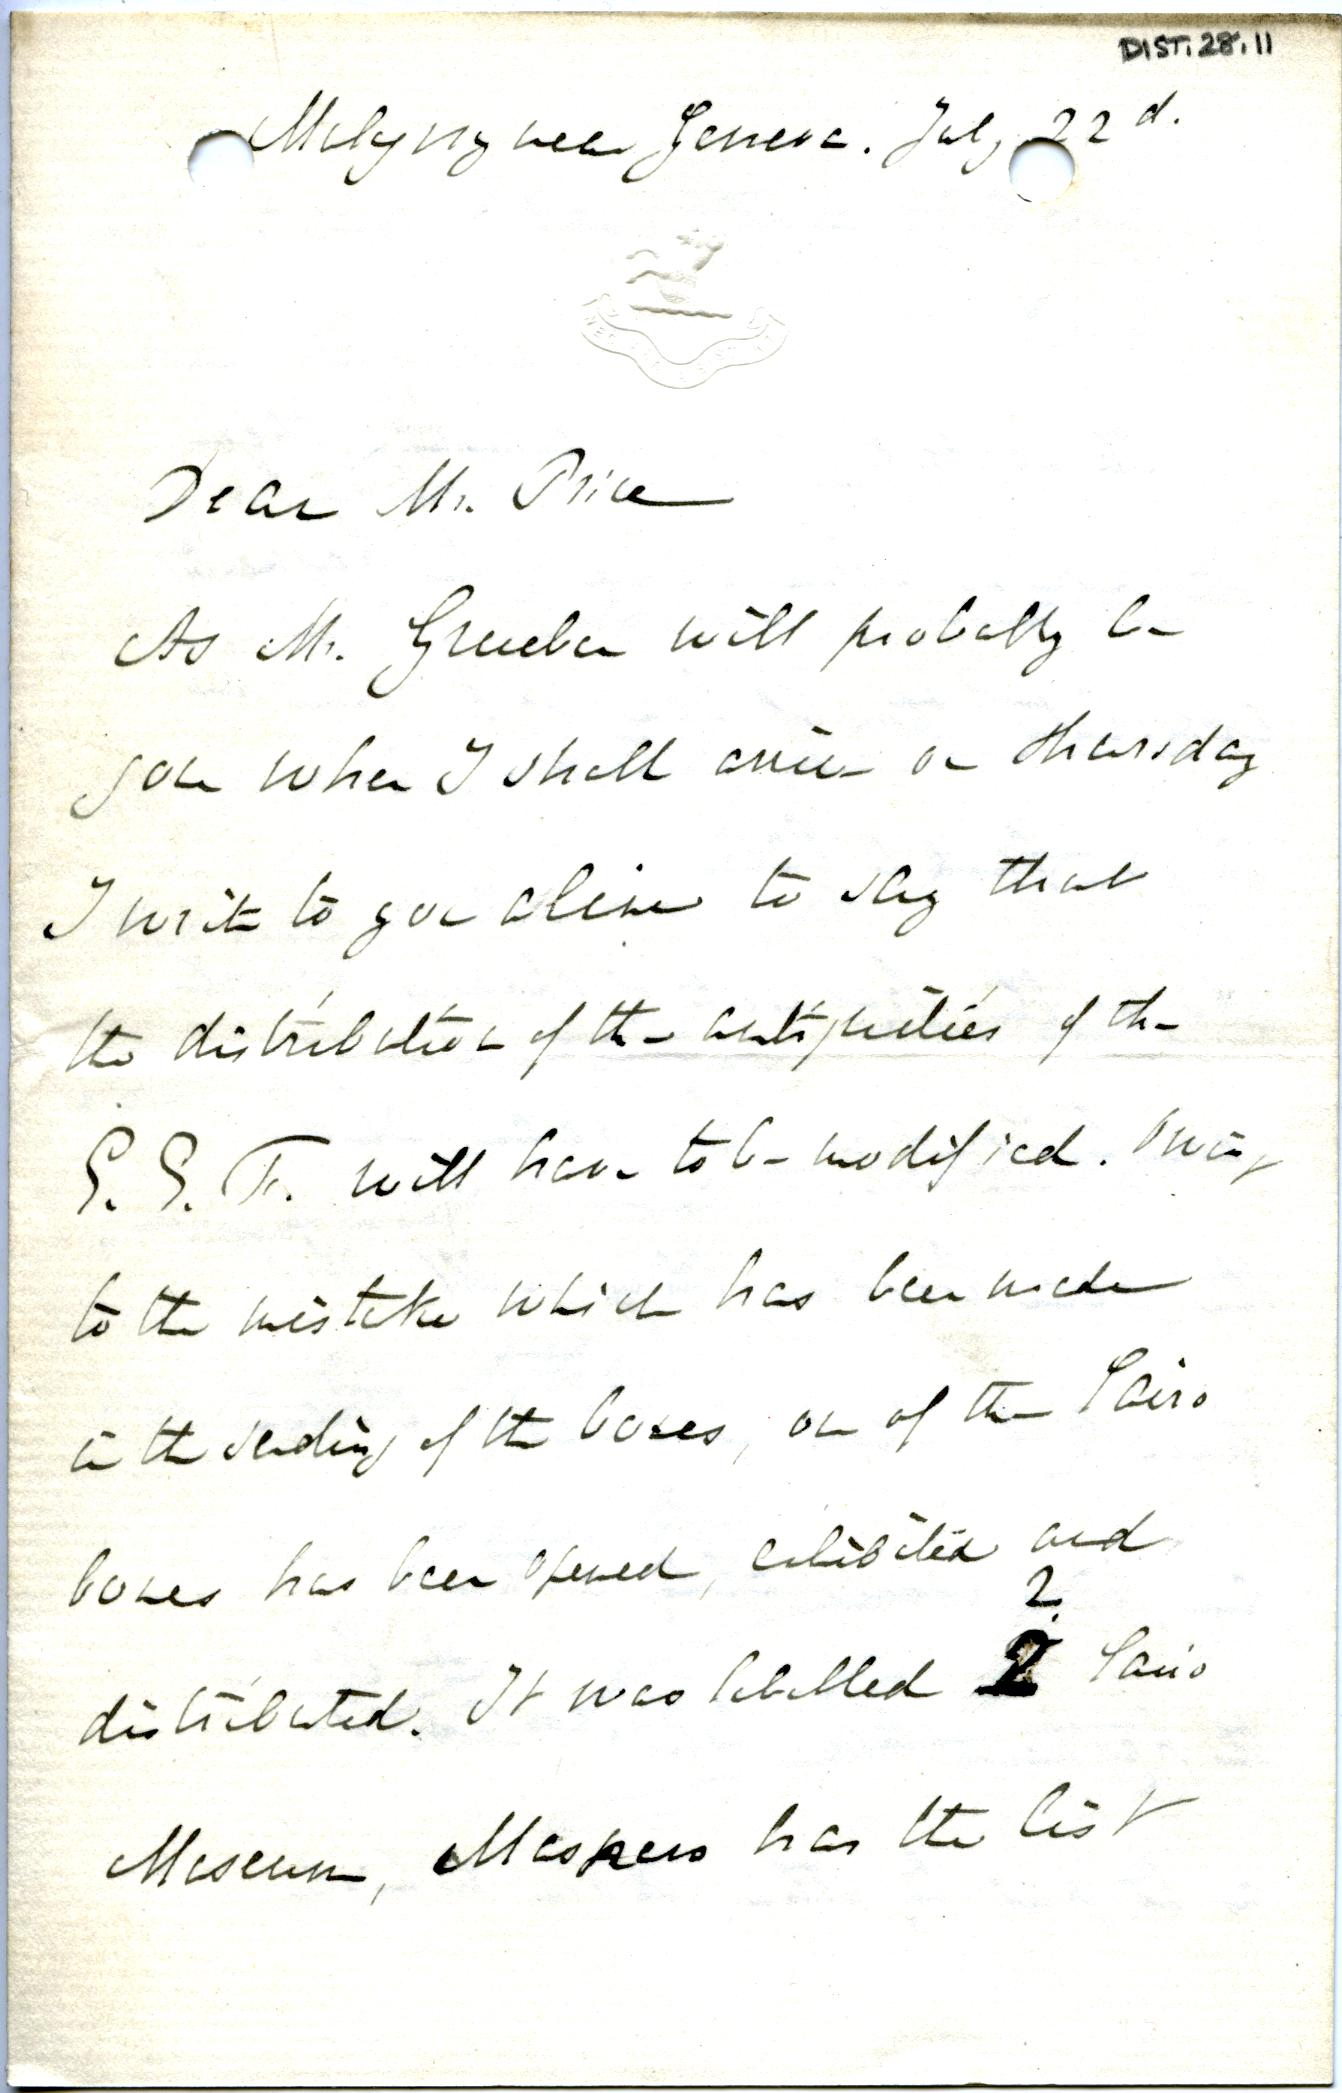 DIST.28.11
Malagny near Geneva. July 22d.
Dear Mr. Price
As Mr. Grueber will probably be
gone when I shall arrive on Thursday
I write to you alone to say that
the distribution of the antiquities of the
E. E. F. will have to be modified. Owing
to the mistake which has been made
in the sending of the boxes, one of the Cairo
boxes has been opened, exhibited and
2
distributed. It was labelled 2 Cairo
Museum, Maspero has the list